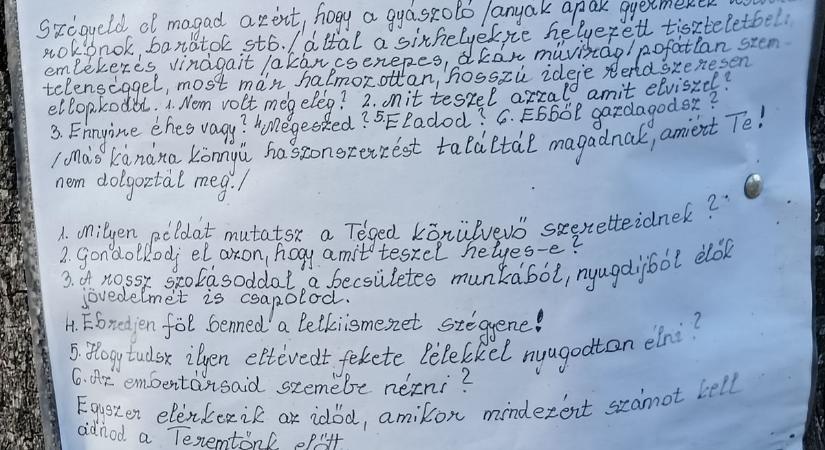 Szégyeld el magad azért, hogy a gyászoló /anyák apák gyermekek
rokonok, barátok stb./ által a sírhelyekre helyezett tiszteletbeli,
emlékezés virágait /akár cserepes, akár művirág/ pofátlan szem-
telenséggel, most már halmozottan, hosszú ideje rendszeresen
ellopkodod. 1. Nem volt még elég? 2. Mit teszel azzal amit elviszel?
3. Ennyire éhes vagy? 4. Megeszed? 5. Eladod? 6. Ebből gazdagodsz?
/Más kárára könnyű haszonszerzést találtál magadnak, amiért Te!
nem dolgoztál meg./
1. Milyen példát mutatsz a Téged körülvevő szeretteidnek?
2. Gondolkodj el azon, hogy amit teszel helyes-e?
3. A rossz szokásoddal a becsületes munkából, nyugdíjból élők
jövedelmét is csapolod.
4. Ébredjen föl benned a lelkiismeret szégyene!
5. Hogy tudsz ilyen eltévedt fekete lélekkel nyugodtan élni?
6. Az embertársaid szemébe nézni?
Egyszer elérkezik az időd, amikor mindezért számot kell
adnod a Teremtőnk előtt